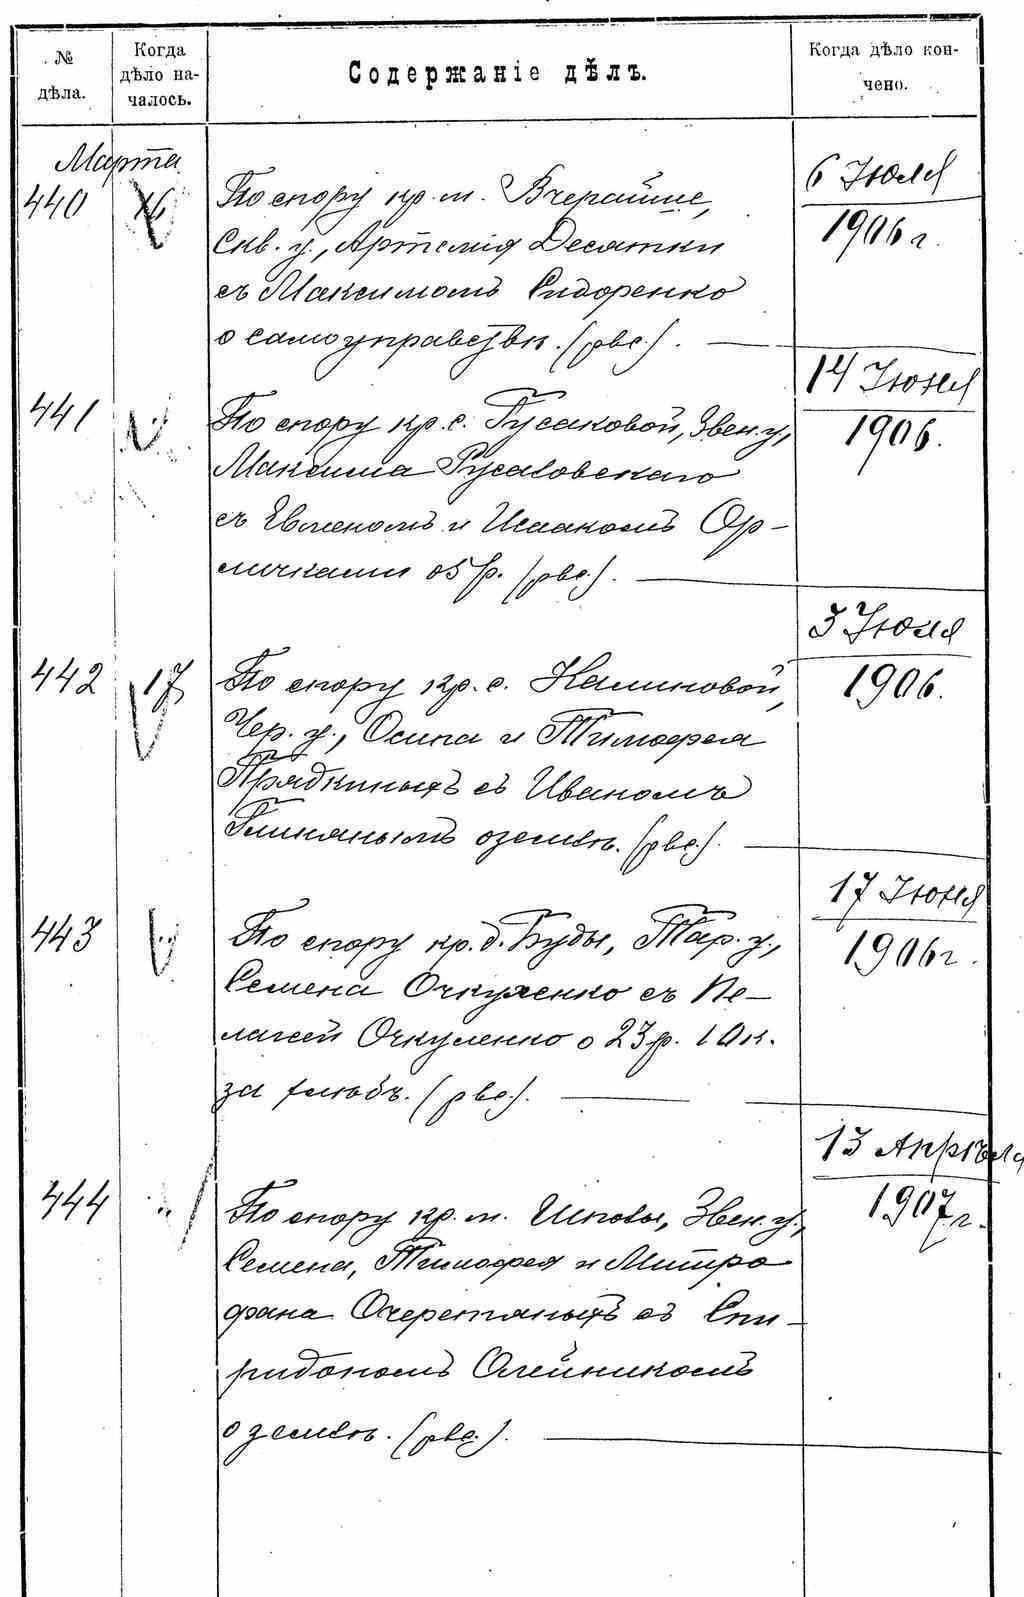 № дѣла.
Когда дѣло началось.
Содержаніе дѣлъ.
Когда дѣло кончено.
Марта
440
16
По спору кр. м. Вчерайше,
Скв. у., Артемія Десятки
съ Максимомъ Сидоренко
о самоуправствѣ. (рве.).
6 Іюля
1906 г.
441
По спору кр. с. Гусаковой, Звен. у.,
Максима Русаковскаго
съ Евменомъ и Исаакомъ Ор-
личками о 5 р. (рве.).
14 Іюня
1906.
442
17
По спору кр. с. Калиновой,
Чер. у., Осипа и Тимофея
Прядкиныхъ съ Иваномъ
о землѣ. (рве.).
3 Іюля
1906.
443
По спору кр. д. Буды, Тар. у.,
Семена Очкуленко съ Пе-
лагеей Очкуленко о 23 р. 10 к.
за хлѣбъ. (рве.).
17 Іюня
1906 г.
444
"
По спору кр. м. Шполы, Звен. у.,
Семена, Тимофея и Митро
фана Очеретяныхъ съ Спи-
ридономъ Олейникомъ
о землѣ. (рве.).
13 Апрѣля
1907 г.